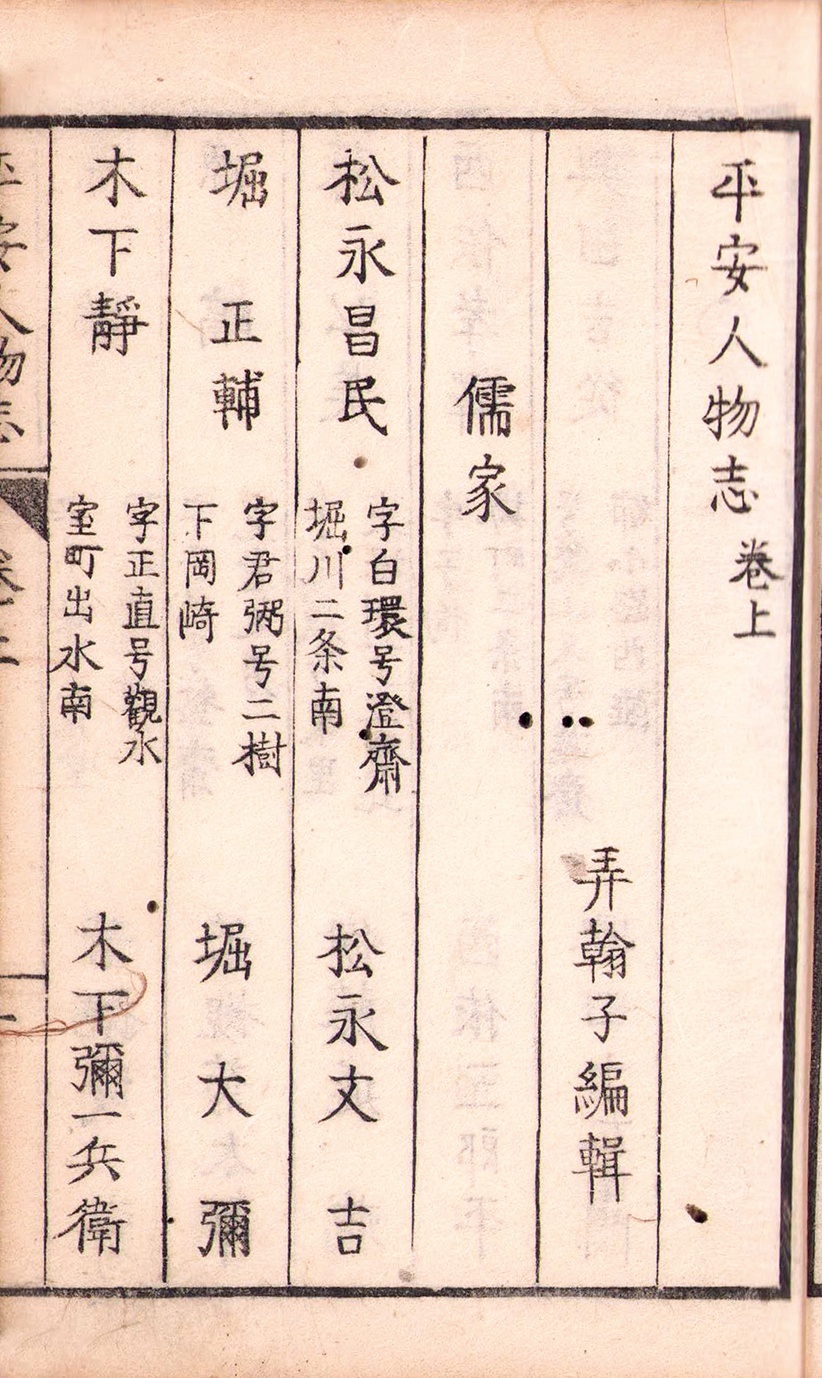 平安人物志 卷上
弄翰子編輯
儒家
松永昌民 字白環号澄齋
堀川二条南 松永丈吉
堀 正輔 字君弼号二樹
下岡崎 堀大彌
木下靜 字正直号觀水
室町出水南 木下彌一兵衛
平安人物志